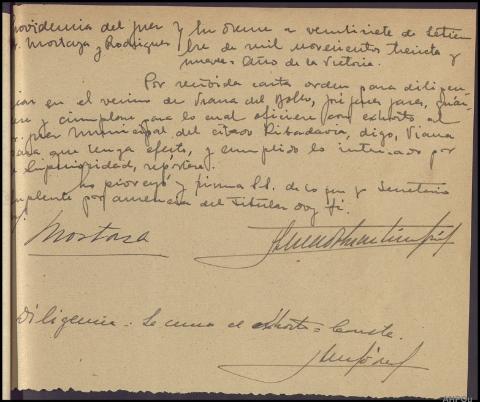 Providencia del Juez y En Orense a veintisiete de Setiem
Sr. Mostaza y Rodriguez bre de mil novecientos treinta y
nueve. Año de la Victoria.
Por recibida carta orden para diligen
ciar en el vecino de Viana del Bollo, José
y cumplase para lo cual oficiese con exhorto al
Sr. Juez Municipal del citado Ribadavia, digo, Viana
para que tenga efecto, y cumplido lo interesado por
la Superioridad, repórtese.
Lo proveyó y firma S.S. de lo que yo Secretario
suplente por ausencia del Titular doy fé.
Mostaza
Diligencia. Se cursa el exhorto. Conste.